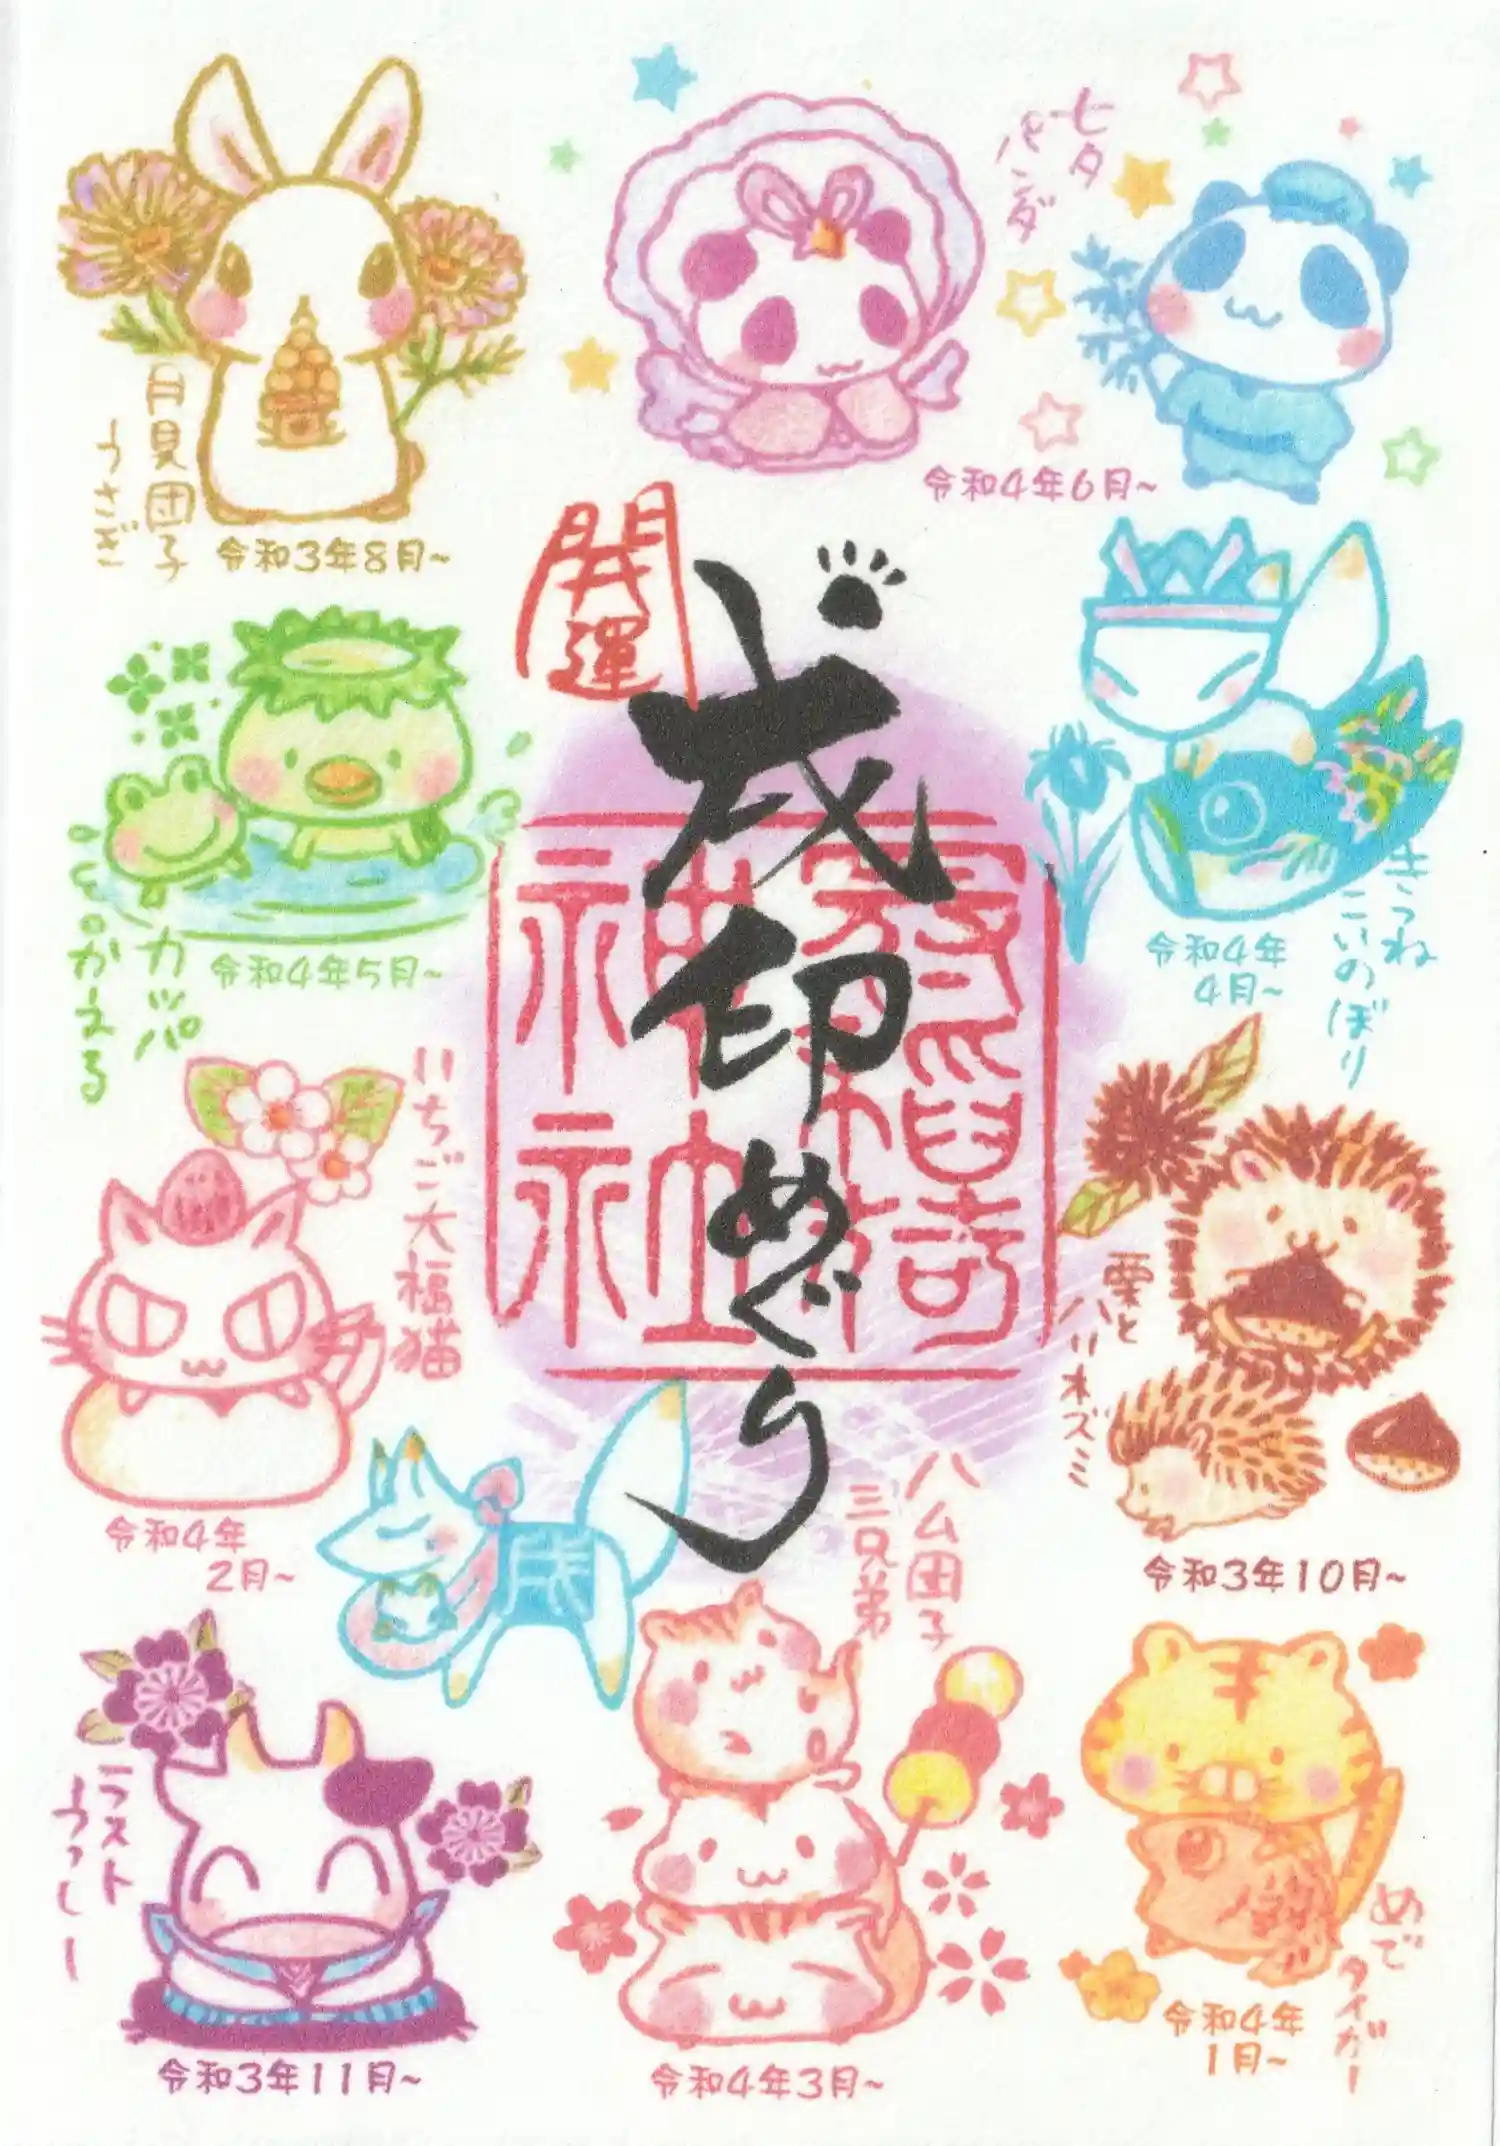 月見団子
うさぎ
令和3年8月~
七夕
パンダ
令和4年6月~
開運
戌印めぐり
神社
カッパ
かえる
令和4年5月~
きつね
こいのぼり
令和4年
4月~
いちご大福猫
令和4年
2月~
栗と
ハリネズミ
令和3年10月~
戌
ハム団子
三兄弟
令和4年3月~
ラスト
うっしー
令和3年11月~
めで
タイガー
令和4年
1月~